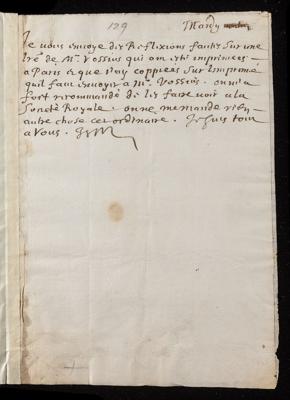 129 Mardy
Je vous envoye des Reflexions faites Sur une
de Mr. Vossius qui ont esté imprimees
a Paris & que Jay coppiées Sur L'imprimé
quil faut Envoyer a Mr. Vossius. on m'a
fort recommandé de les faire voir a la
Societé Royale. on ne me mande rien
autre chose cet ordinaire. Je suis tout
a Vous.